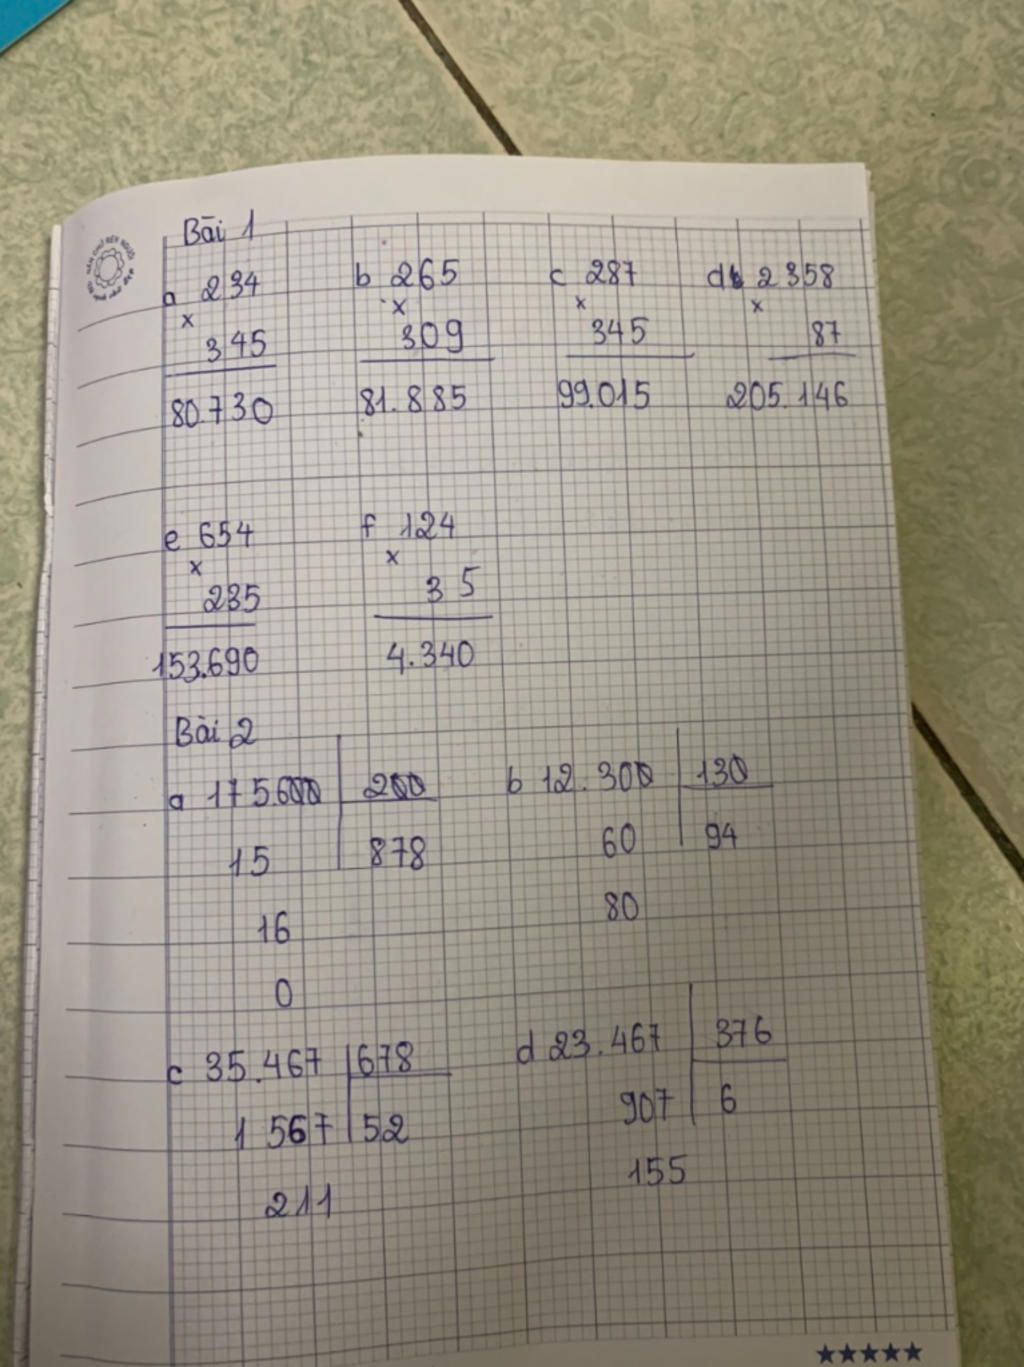 Bài 1
a 234 b 265 c 287 d 2358
x x x x
345 309 345 87
80.730 81.885 99.015 205.146
e 654 f 124
x x
235 35
153.690 4.340
Bài 2
a 175.600 200 b 12.300 130
15 878 60 94
16 80
0
c 35.467 678 d 23.467 376
1 567 52 907 6
211 155